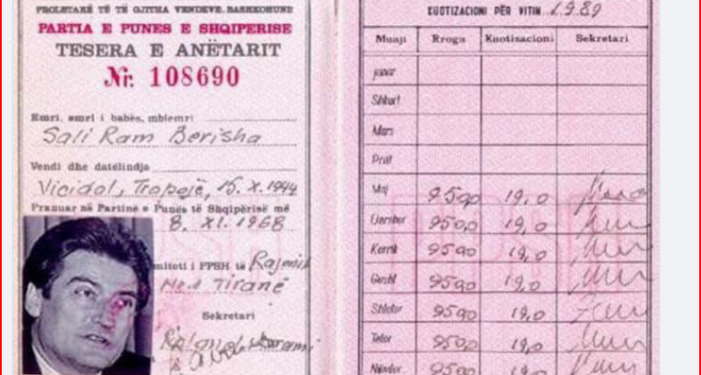 PROLETARË TË TË GJITHA VENDEVE, BASHKOHUNI
PARTIA E PUNES E SHQIPERISE
TESERA E ANËTARIT
Nr. 108690
Emri, emri i babës, mbiemri
Sali Ram Berisha
Vendi dhe datëlindja
Vicidol, Tropojë, 15.X.1944
Pranuar në Partinë e Punës të Shqipërisë më
8. XI. 1968
miteti i PPSH të Rajonit
Nr. 2 Tiranë
Sekretari
KUOTIZACIONI PËR VITIN 1989
Muaji Rroga Kuotizacioni Sekretari
Janar
Shkurt
Mars
Prill
Maj 950,0 19,0
Qershor 950,0 19,0
Korrik 950,0 19,0
Gusht 950,0 19,0
Shtator 950,0 19,0
Tetor 950,0 19,0
Nëndor 950,0 19,0